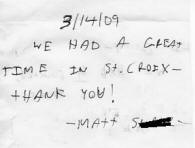 3/14/09
WE HAD A GREAT
TIME IN St. CROIX-
tHANK YOU!
-MATT